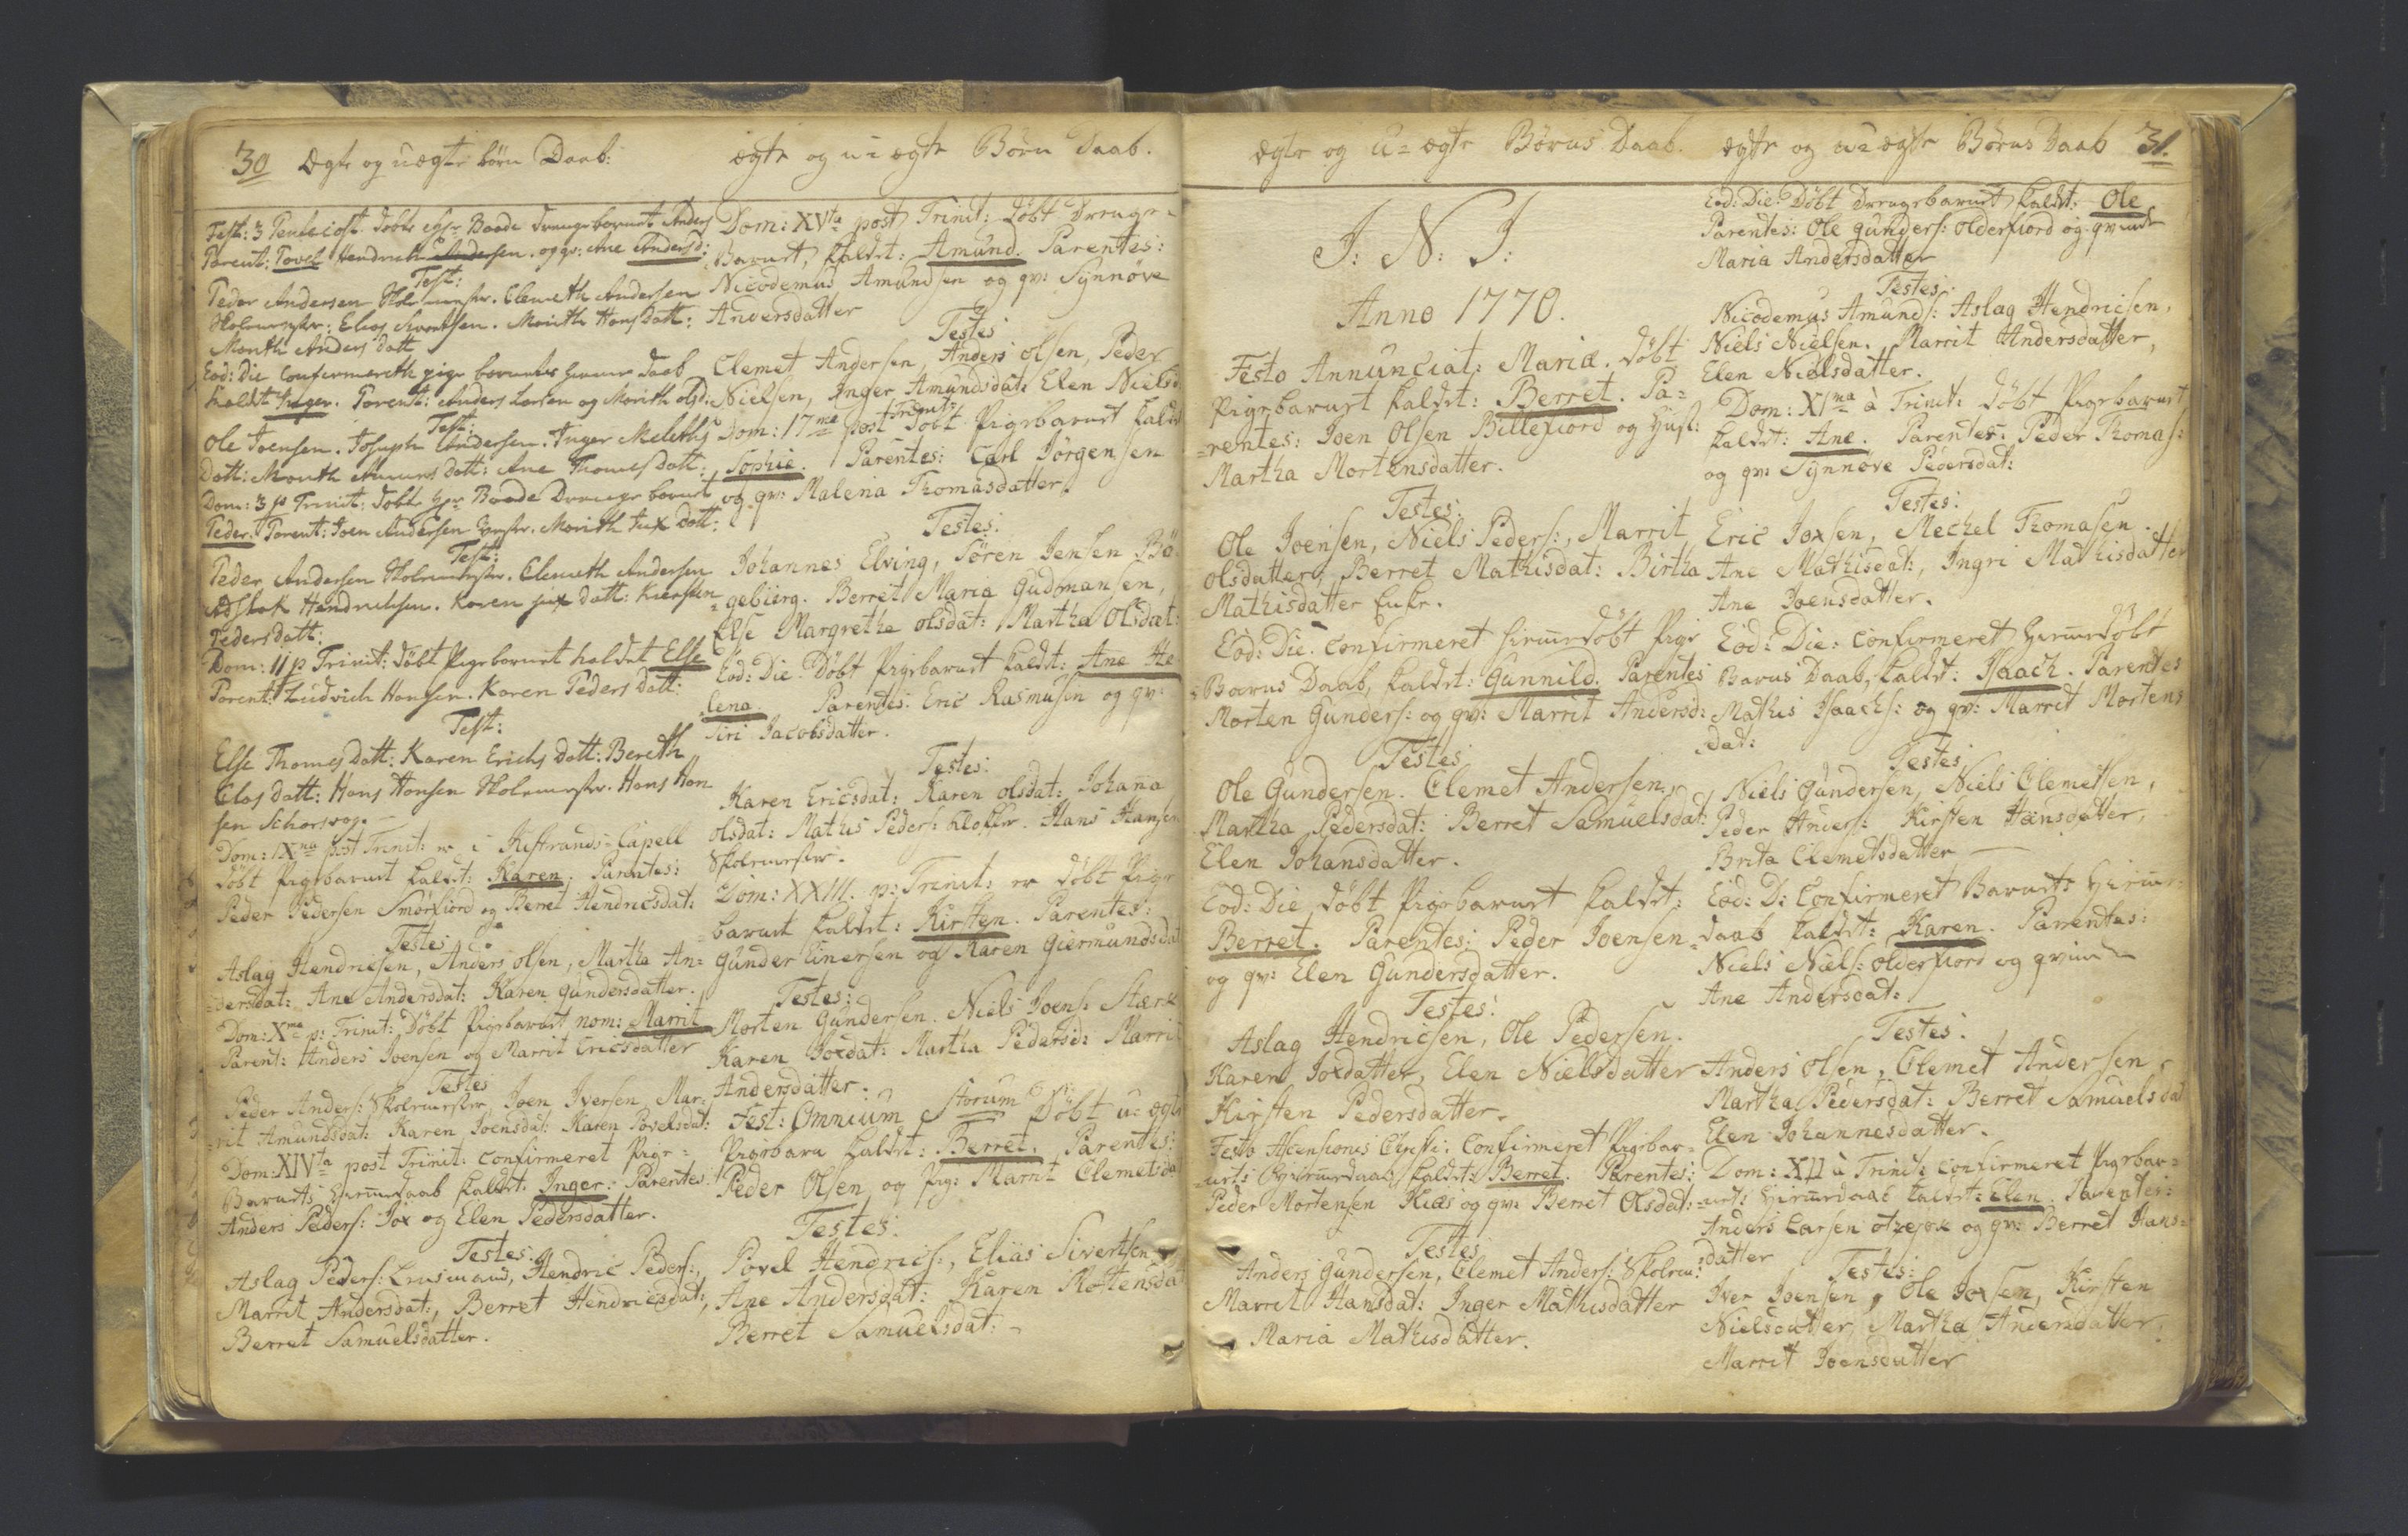 30 Ægte og uægte börn Daab:
Fest: 3 Pentecost. döbte Baade drenge barnet Anders
Parent: Povel Hendrich Andersen. og qv: Ane Andersd:
Test:
Peder Andersen Skolemester. Clemeth Andersen
Skolemester: Elias Sivertsen. Marith Hans Datt:
Marith Anders datt
Eod: Die Confirmereth pige barnets hiemme daab
kaldet Inger. Parent: Anders Larsen og Marith olsd:
Test:
Ole Joensen. Joseph Andersen. Inger Melchis
Datt: Marith Amunds datt: Ane Thomes datt:
Dom: 3 p Trinit: döbt Baade Drenge barnet
Peder. Parent: Joen Andersen Marith Jux dott:
Test:
Peder Andersen Skolemester. Clemeth Andersen
Adslak Hendrichsen. Karen jux datt: Kiersten
Peders datt:
Dom: 11 p Trinit: döbt Pigebarnet kaldet Else
Parent: Ludvich Hansen. Karen Peders datt:
Test:
Else Thomes datt: Karen Erichs datt: Bereth
Elas datt: Hans Hansen Skolemester. Hans Han
sen
Dom: IXna post Trinit: er i Kistrands-Capell
döbt Pigebarnet kaldt: Karen. Parentes:
Peder Pedersen Smörfiord og Berret Hendricsdat:
Testes
Aslag Hendricsen, Anders olsen, Martha An=
=dersdat: Ane Andersdat: Karen gundersdatter.
Dom: Xma p: Trinit: Döbt Pigebarnet nom: Marrit
Parent: Anders Joensen og Marrit Ericsdatter
Testes
Peder Anders: Skolemester, Joen Iversen, Mar=
=rit Amundsdat: Karen Joensdat: Karen Povelsdat:
Dom: XIVta post Trinit: confirmeret Pige=
Barnets hiemmedaab kaldt: Inger. Parentes:
Anders Peders: Jox og Elen Pedersdatter.
Testes:
Aslag Peders: Lensmand, Hendric Peders:,
Marrit Andersdat:, Berret Hendricsdat:,
Berret Samuelsdatter.
ægte og u=ægte Börn Daab.
Dom: XVta post Trinit: Döbt Drenge=
Barnet, kaldt: Amund. Parentes:
Nicodemus Amundsen og qv: Synnöve
Andersdatter
Testes
Clemet Andersen, Anders olsen, Peder
Nielsen, Inger Amundsdat: Elen Nielsd:
Dom: 17ma post Trinit: Döbt Pigebarnet kaldt
Sophie. Parentes: Carl Jörgensen
og qv: Malena Thomasdatter.
Testes:
Johannes Elving, Sören Jensen Bö=
=gebierg. Berret Maria Gudmansen,
Else Margrethe olsdat: Martha Olsdat:
Eod: Die: Döbt Pigebarnet kaldt: Ane He=
=lena. Parentes: Eric Rasmusen og qv:
Siri Jacobsdatter.
Testes:
Karen Ericsdat: Karen olsdat: Johana
olsdat: Mathis Peders: Klokker. Hans Hansen
Skolemester.
Dom: XXIII. p: Trinit: er döbt Pige
barnet kaldt: Kirsten. Parentes:
Gunder Einersen og Karen Giermundsdat
Testes:
Morten Gundersen. Niels Joens: Stærk
Karen Joxdat: Martha Pedersd: Marrit
Andersdatter.
Fest: Omnium S:torum Döbt u=ægte
Pigebarn kaldt: Berret. Parentes:
Peder Olsen og pig: Marrit Clemetsda
Testes:
Povel Hendrics:, Elias Sivertsen
Ane Andersdat: Karen Mortensdat
Berret Samuelsdat:
ægte og u=ægte Börns Daab.
J: N: J:
Anno 1770.
Festo Annunciat: Mariæ. Döbt
Pigebarnet kaldet: Berret. Pa=
=rentes: Joen Olsen Billefiord og Hust:
Martha Mortensdatter.
Testes:
Ole Joensen, Niels Peders:, Marrit
olsdatter, Berret Mathisdat: Birtha
Mathisdatter Enke.
Eod: Die. confirmeret hiemmedöbt Pige
=Barns Daab, kaldet: Gunnild. Parentes
Morten Gunders: og qv: Marrit Andersd:
Testes
Ole Gundersen. Clemet Andersen,
Martha Pedersdat: Berret Samuelsdat:
Elen Johansdatter.
Eod: Die döbt Pigebarnet kaldet:
Berret. Parentes: Peder Joensen
og qv: Elen Gundersdatter.
Testes:
Aslag Hendricsen, Ole Pedersen.
Karen Joxdatter, Elen Nielsdatter
Kirsten Pedersdatter.
Festo Ascensionis Christi. Confirmeret Pigebar=
=nets hiemmedaab kaldt: Berret. Parentes:
Peder Mortensen Kiæs og qv: Berret Olsdat:
Testes
Anders Gundersen, Clemet Anders: Skolem:
Marrit Hansdat: Inger Mathisdatter
Maria Mathisdatter.
ægte og u=ægte Börns Daab 31.
Eod: Die: Döbt Drengebarnet kaldt: Ole
Parentes: Ole gunders: olderfiord og qvinde
Maria Andersdatter
Testes:
Nicodemus Amunds: Aslag Hendricsen,
Niels Nielsen. Marrit Andersdatter,
Elen Nielsdatter.
Dom: XIma à Trinit: döbt Pigebarnet
kaldet: Ane. Parentes: Peder Thomas:
og qv: Synnöve Pedersdat:
Testes:
Eric Joxsen, Mechel Thomasen.
Ane Mathisdat:, Ingri Mathisdatter
Ane Joensdatter.
Eod: Die: confirmeret hiemmedöbt
Barns Daab, kaldt: Isaach. Parentes
Mathis Isaachs: og qv: Marrit Mortens
dat:
Testes
Niels Gundersen, Niels Clemetsen,
Peder Anders: Kirsten Hansdatter,
Brita Clemetsdatter
Eod: D: Confirmeret Barnets hiemme=
=daab kaldt: Karen. Parentes:
Niels Niels: olderfiord og qvinde
Ane Andersdat:
Testes:
Anders olsen, Clemet Andersen
Martha Pedersdat: Berret Samuelsdat
Elen Johannesdatter.
Dom: XII à Trinit: Confirmeret Pigebar=
=nets hiemmedaab kaldt: Elen. Parentes:
Anders Larsen og qv: Berret Hans=
=datter
Testes:
Iver Joensen, Ole Joxsen, Kirsten
Nielsdatter, Martha Andersdatter,
Marrit Joensdatter